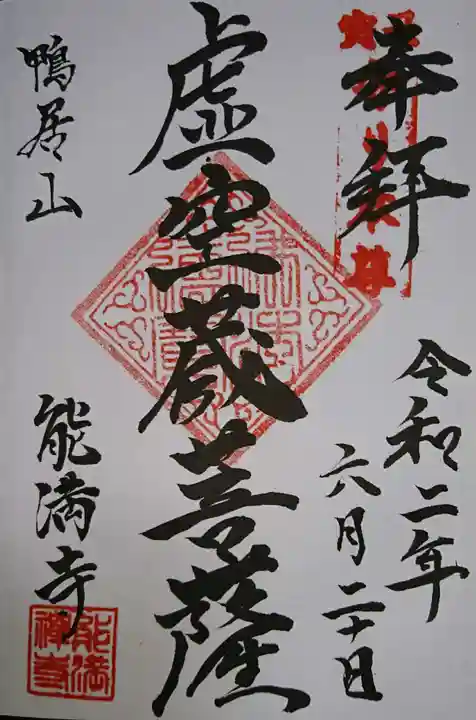 奉拝
令和二年
六月二十日
虚空蔵菩薩
鴨居山
能満寺
能満
禅寺